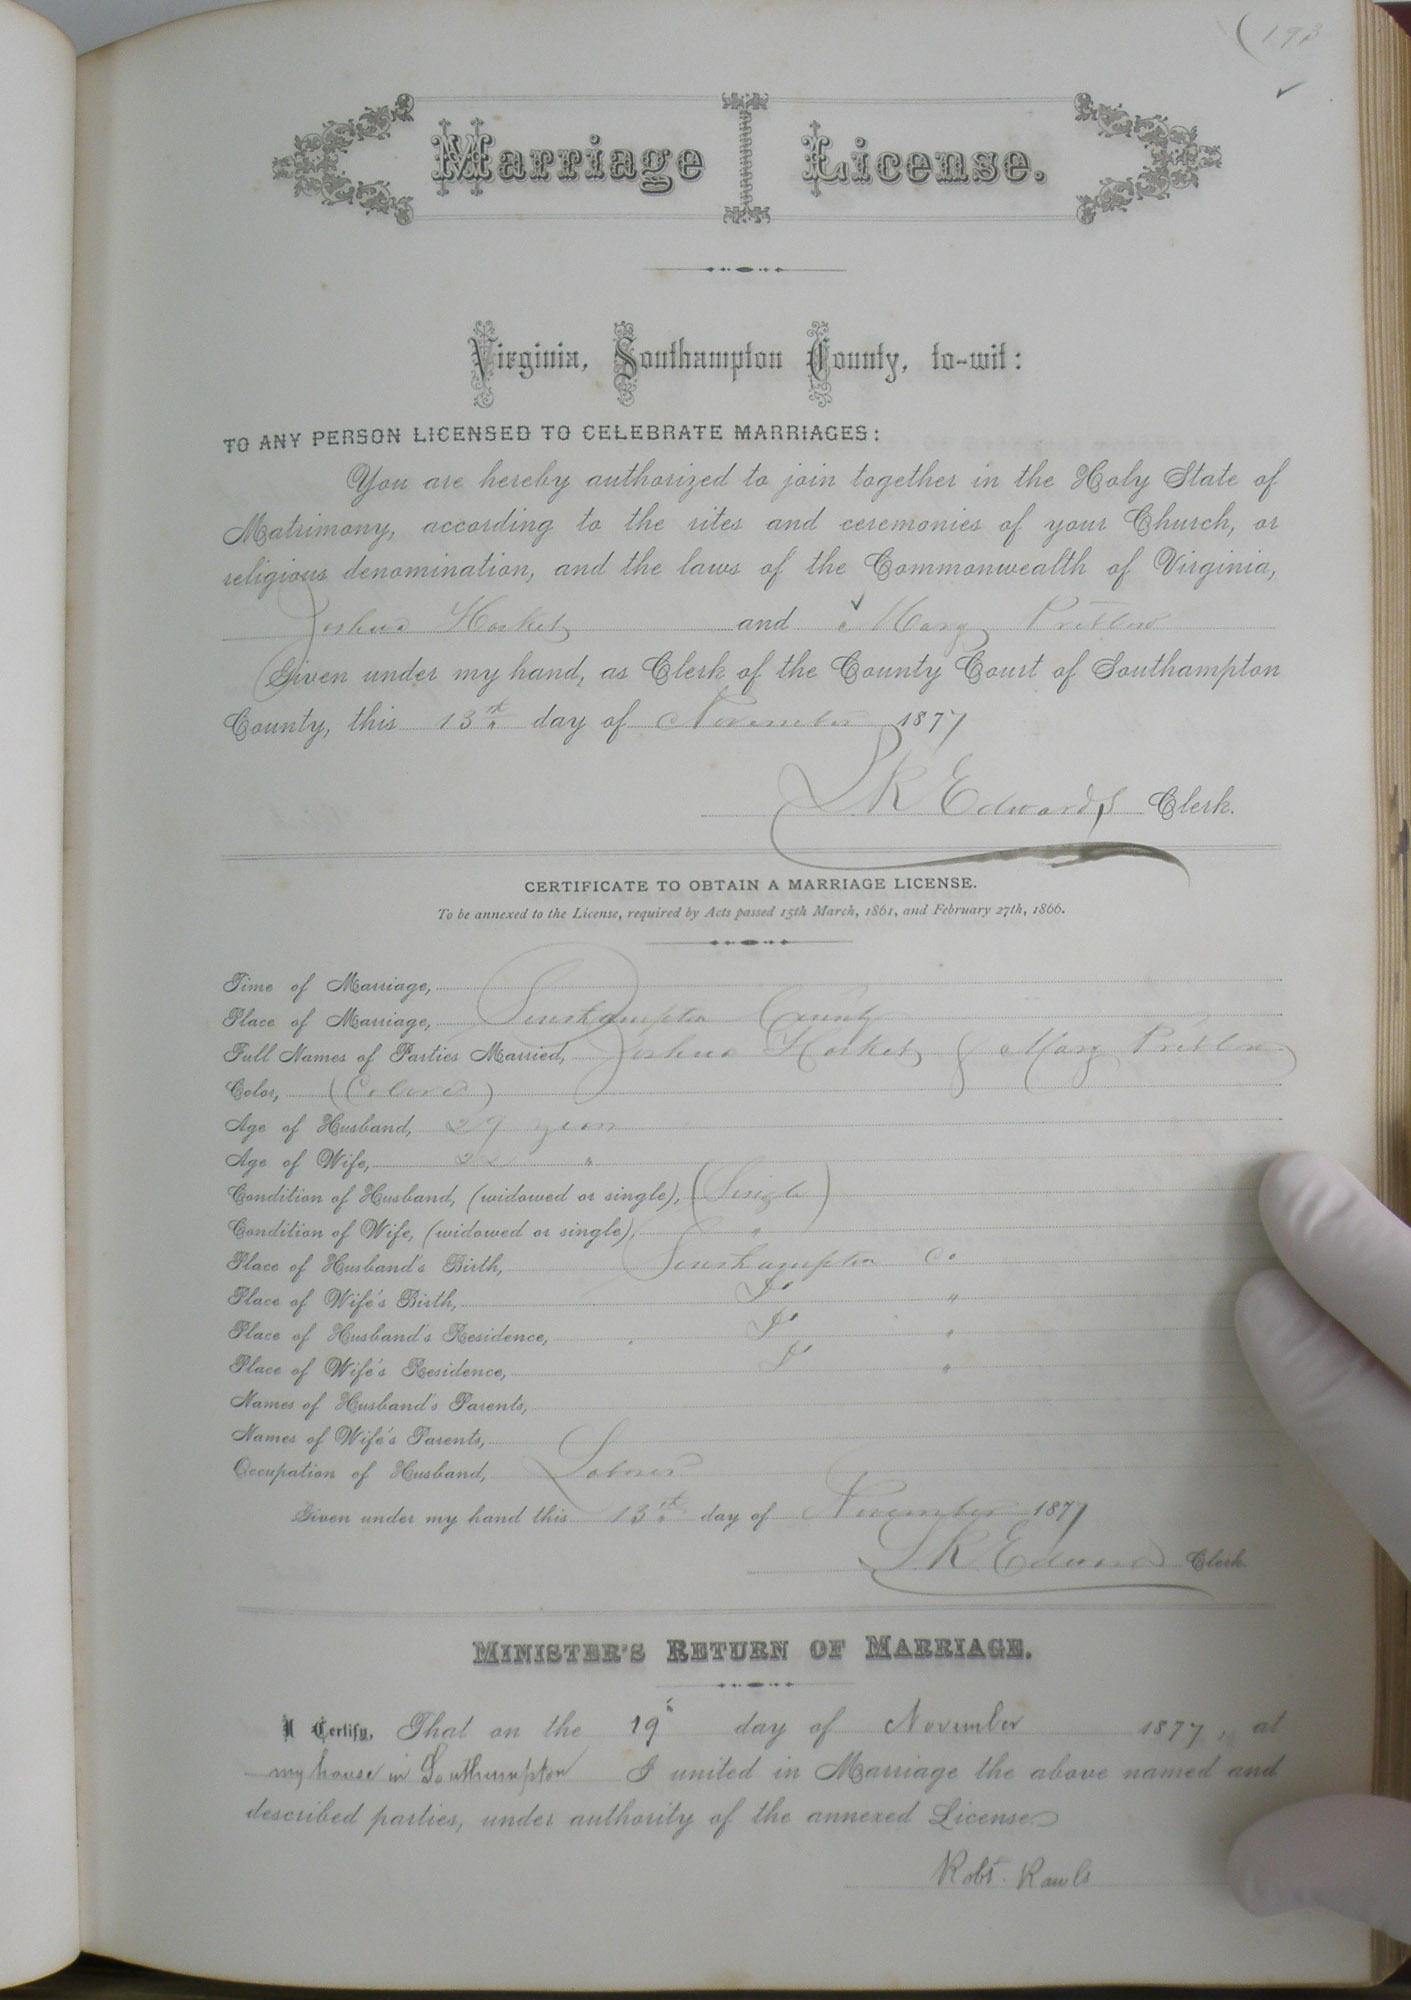 (193
Marriage License.
Virginia, Southampton County, to-wit:
TO ANY PERSON LICENSED TO CELEBRATE MARRIAGES:
You are hereby authorized to join together in the Holy State of
Matrimony, according to the rites and ceremonies of your Church, or
religious denomination, and the laws of the Commonwealth of Virginia,
Joshua and Mary Pretlow
Given under my hand, as Clerk of the County Court of Southampton
County, this 13th day of November 1877
L R Edwards Clerk.
CERTIFICATE TO OBTAIN A MARRIAGE LICENSE.
To be annexed to the License, required by Acts passed 15th March, 1861, and February 27th, 1866.
Time of Marriage,
Place of Marriage, Southampton County
Full Names of Parties Married, Joshua & Mary Pretlow
Color, (Colored)
Age of Husband, 29 years
Age of Wife, 22 "
Condition of Husband, (widowed or single), (Single)
Condition of Wife, (widowed or single), "
Place of Husband's Birth, Southampton Co
Place of Wife's Birth, Do "
Place of Husband's Residence, Do "
Place of Wife's Residence, Do "
Names of Husband's Parents,
Names of Wife's Parents,
Occupation of Husband, Laborer
Given under my hand this 13th day of November 1877
L R Edwards Clerk
MINISTER'S RETURN OF MARRIAGE.
I Certify, That on the 19th day of November 1877, at
my house in Southampton I united in Marriage the above named and
described parties, under authority of the annexed License
Robt. Rawls